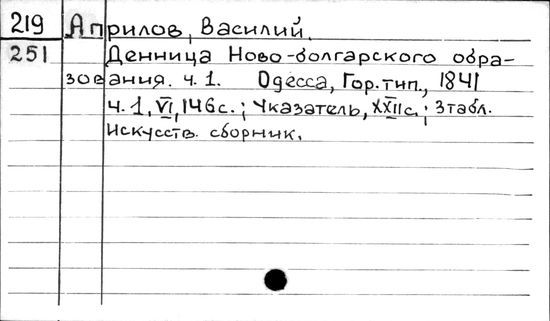 219 Априлов, Василий.
251 Денница Ново-болгарского обра-
зования. ч. 1. Одесса, Гор. тип., 1841
ч. 1, VI, 146 с.; Указатель, XXII с.; 3 табл.
Искусств. сборник.